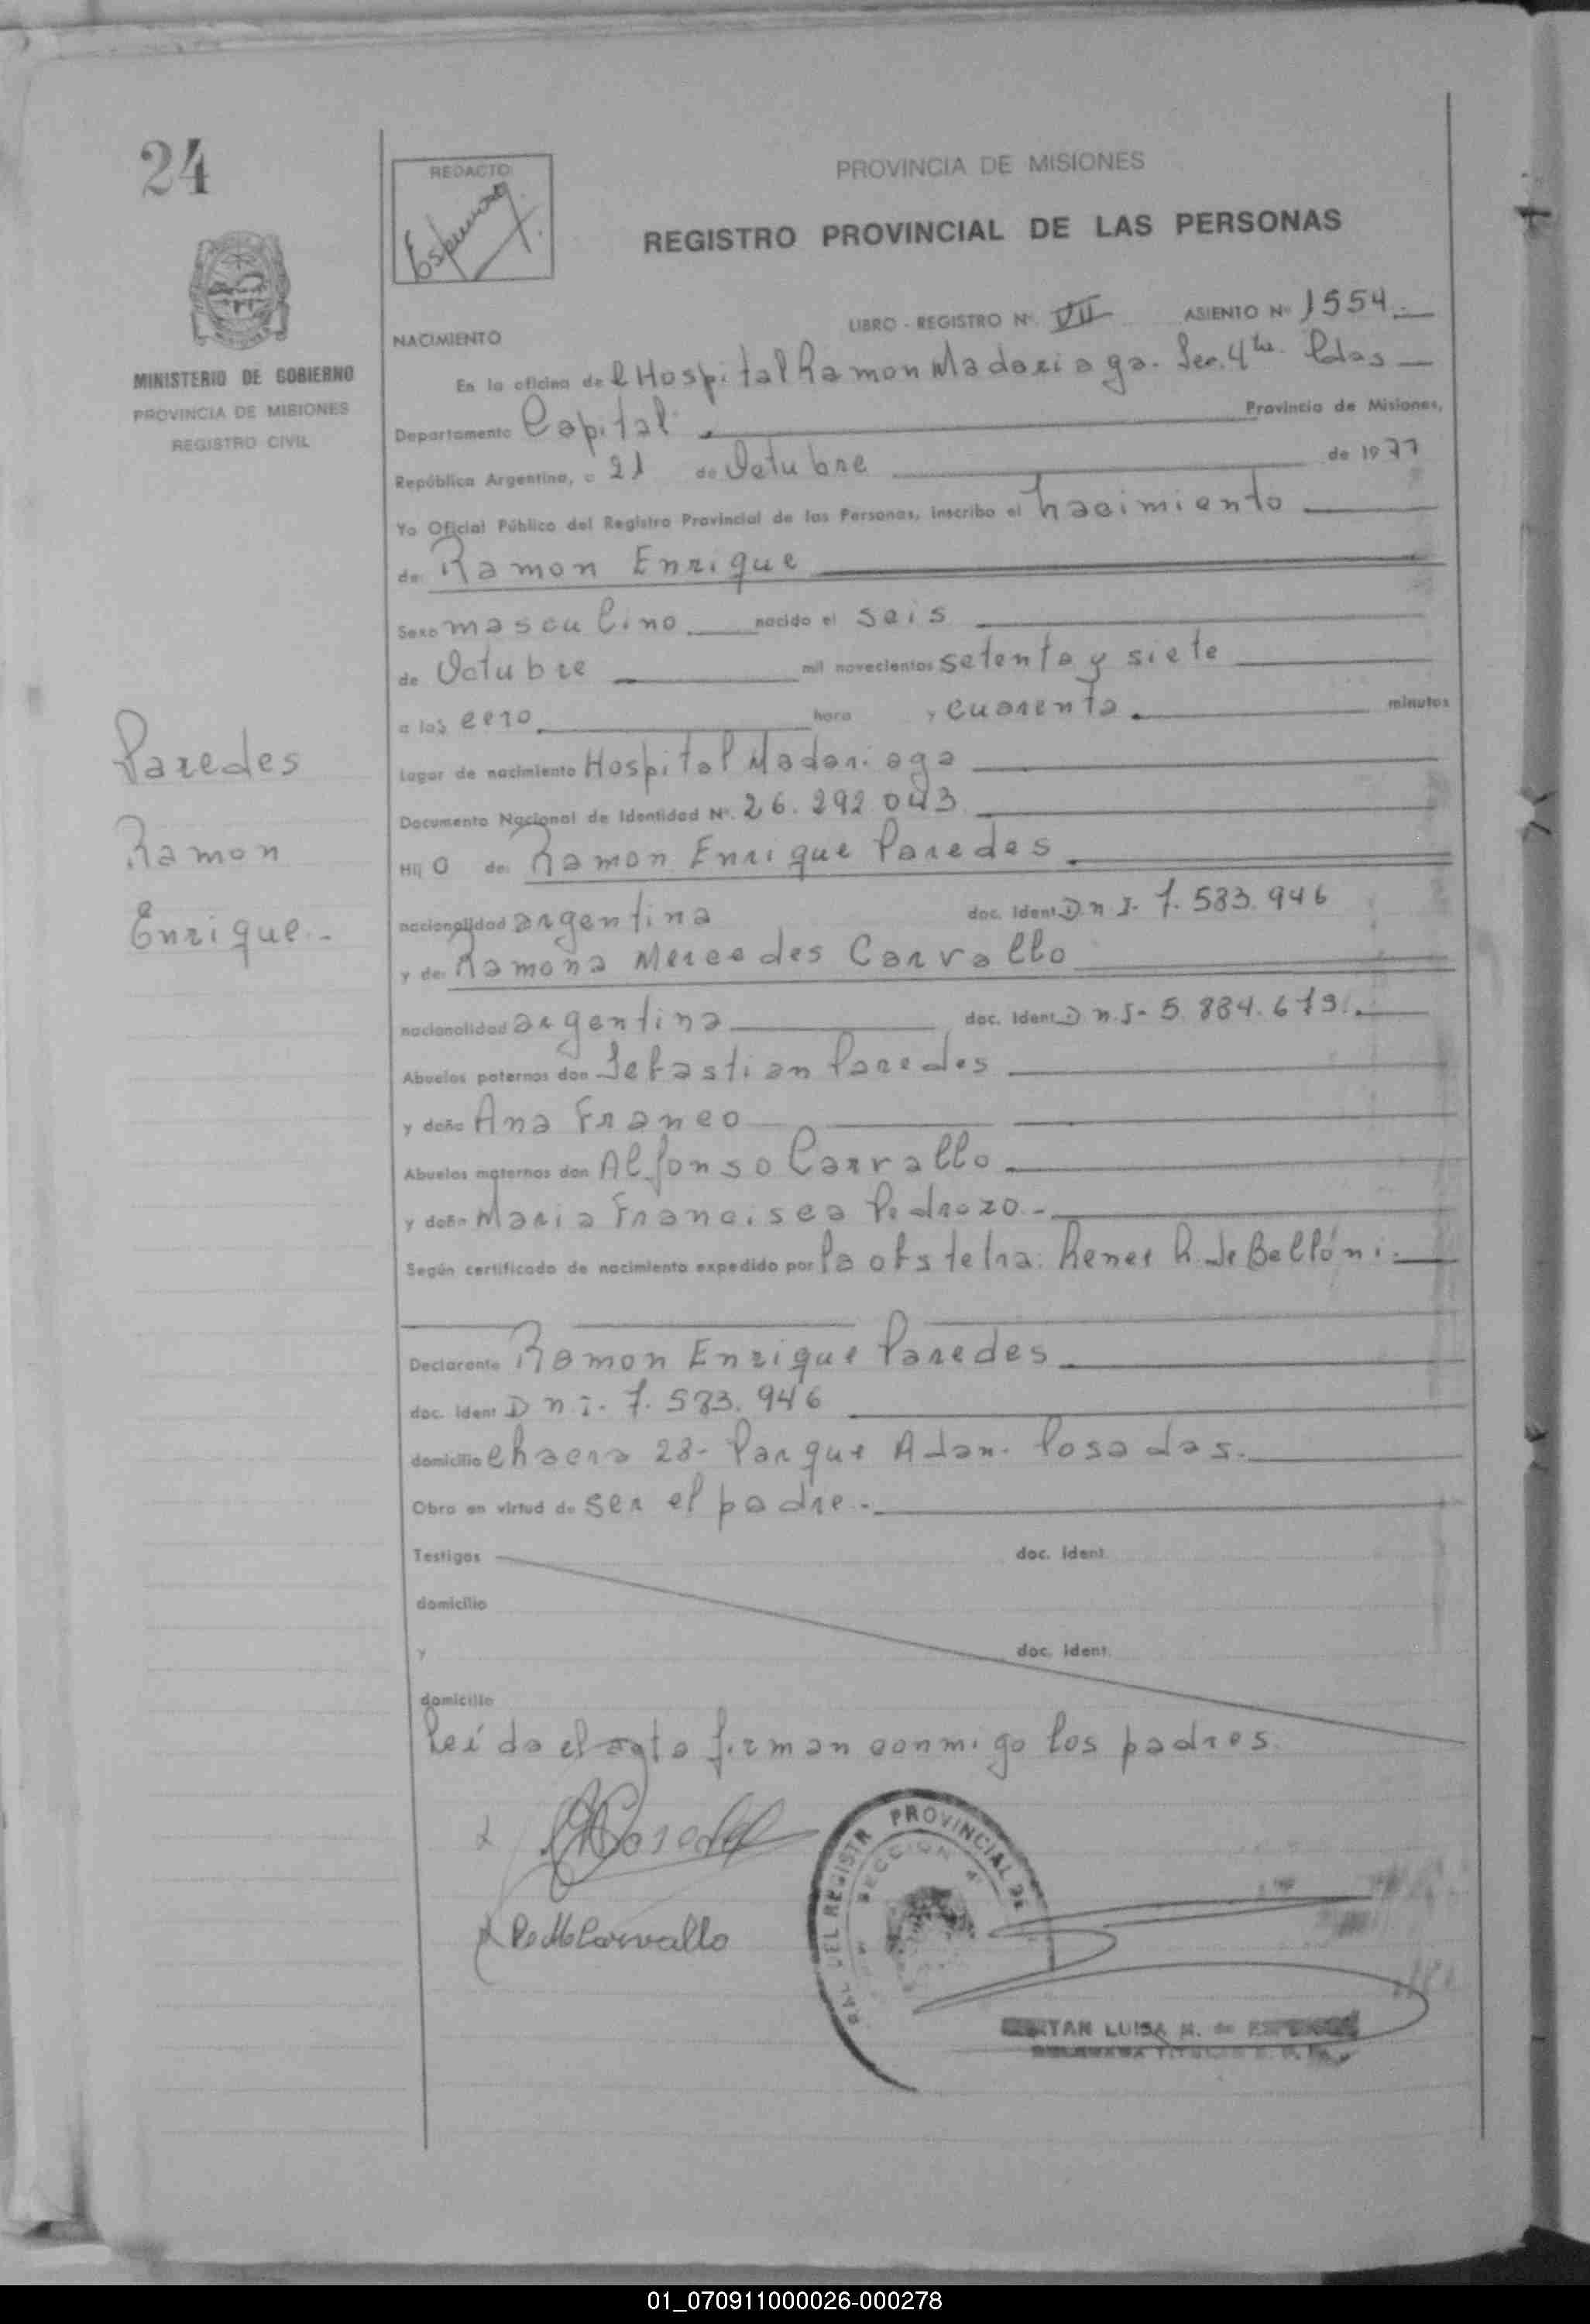 24
REDACTO
PROVINCIA DE MISIONES
REGISTRO PROVINCIAL DE LAS PERSONAS
MINISTERIO DE GOBIERNO
PROVINCIA DE MISIONES
REGISTRO CIVIL
NACIMIENTO LIBRO - REGISTRO Nº. VII ASIENTO Nº 1554.
En la oficina de l Hospital Ramon Madariaga. Sec. 4ta. Pdas
Departamento Capital. Provincia de Misiones,
República Argentina, a 21 de Octubre de 1977
Yo Oficial Público del Registro Provincial de las Personas, inscribo el nacimiento
de: Ramon Enrique
Sexo masculino nacido el seis
de Octubre mil novecientos setenta y siete
a las cero hora y cuarenta. minutos
Lugar de nacimiento Hospital Madariaga
Documento Nacional de Identidad Nº. 26.292.043
Hij o de: Ramon Enrique Paredes
nacionalidad argentina doc. Ident. D.n.I. 7.583.946
y de: Ramona Mercedes Carvallo
nacionalidad argentina doc. Ident. D.n.I- 5.884.679.
Abuelos paternos don Sebastian Paredes
y doña Ana Franco
Abuelos maternos don Alfonso Carvallo
y doña Maria Francisca Pedrozo.-
Según certificado de nacimiento expedido por la obstetra: Renee R. de Bellóni.
Declarante Ramon Enrique Paredes
doc. Ident D.n.i. 7.583.946
domicilio chacra 28- Parque Adam. Posadas.
Obra en virtud de ser el padre.-
Testigos doc. Ident.
domicilio
y doc. Ident.
domicilio
Leída el acta firman conmigo los padres.
Paredes
Ramon
Enrique.-
Paredes
R M Carvallo
DEL REGISTR PROVINCIAL DE
SECCION 4
LUISA M. de
01_070911000026-000278